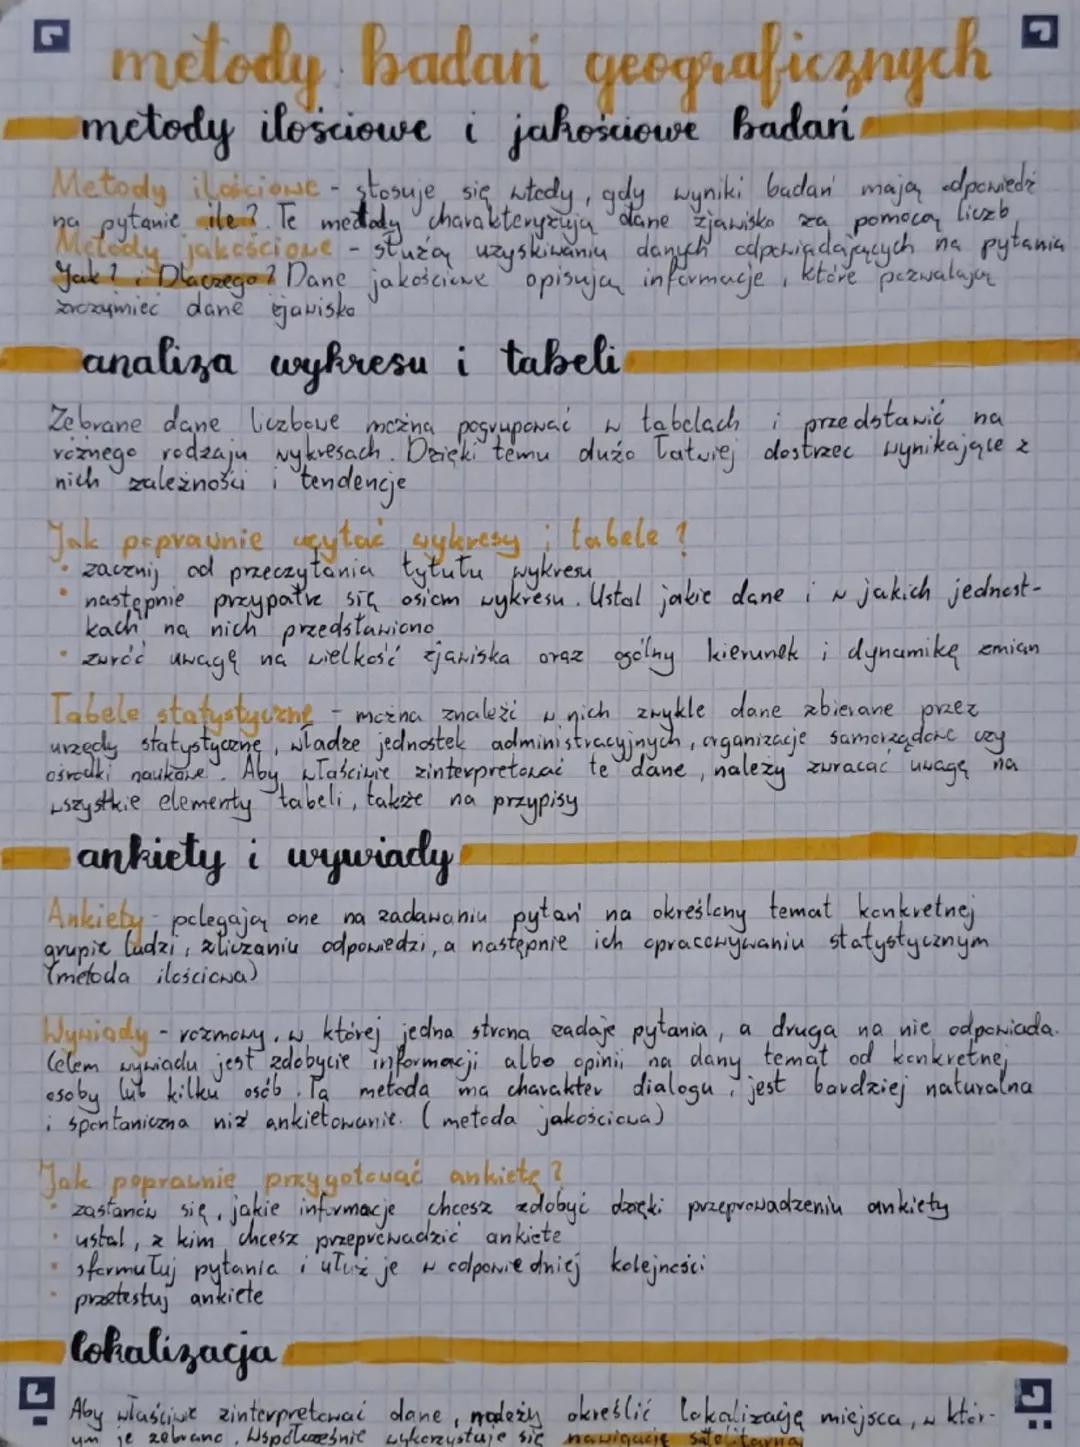 metody badań geograficznych
metody ilościowe i jakościowe badań
Metody ilościowe - stosuje się wtedy, gdy wyniki badań mają odpowiedź
na pytanie ile?. Te metody charakteryzują dane zjawisko za pomocą liczb
Metody jakościowe - służą uzyskiwaniu danych odpowiadających na pytania
Jak? i Dlaczego? Dane jakościowe opisują informacje, które pozwalają
zrozumieć dane zjawisko
analiza wykresu i tabeli
Zebrane dane liczbowe można pogrupować w tabelach i przedstawić na
różnego rodzaju wykresach. Dzięki temu dużo łatwiej dostrzec wynikające z
nich zależności i tendencje
Jak poprawnie czytać wykresy i tabele?
• zacznij od przeczytania tytułu wykresu
• następnie przypatrz się osiom wykresu. Ustal jakie dane i w jakich jednost-
kach na nich przedstawiono
• zwróć uwagę na wielkość zjawiska oraz ogólny kierunek i dynamikę zmian
Tabele statystyczne - można znaleźć w nich zwykle dane zbierane przez
urzędy statystyczne, władze jednostek administracyjnych, organizacje samorządowe czy
ośrodki naukowe. Aby właściwie zinterpretować te dane, należy zwracać uwagę na
wszystkie elementy tabeli, także na przypisy
ankiety i wywiady
Ankiety - polegają one na zadawaniu pytań na określony temat konkretnej
grupie ludzi, zliczaniu odpowiedzi, a następnie ich opracowywaniu statystycznym
(metoda ilościowa)
Wywiady - rozmowy, w której jedna strona zadaje pytania, a druga na nie odpowiada.
Celem wywiadu jest zdobycie informacji albo opinii na dany temat od konkretnej
osoby lub kilku osób. Ta metoda ma charakter dialogu, jest bardziej naturalna
i spontaniczna niż ankietowanie. (metoda jakościowa)
Jak poprawnie przygotować ankietę?
• zastanów się, jakie informacje chcesz zdobyć dzięki przeprowadzeniu ankiety
• ustal, z kim chcesz przeprowadzić ankiete
• sformułuj pytania i ułóż je w odpowiedniej kolejności
• przetestuj ankiete
lokalizacja
Aby właściwie zinterpretować dane, należy określić lokalizację miejsca, w któr-
ym je zebrano. Współcześnie wykorzystuje się nawigację satelitarną